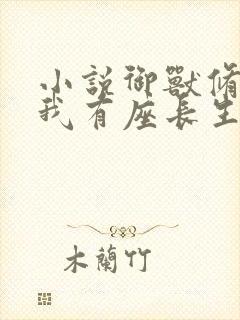 小説御獸脩
我有座長生
木蘭竹